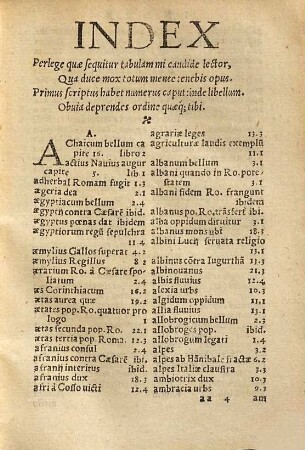 INDEX
Perlege quæ sequitur tabulam mi candide lector,
Qua duce mox totum mente tenebis opus.
Primus scriptus habet numerus caput: inde libellum.
Obuia deprendes ordine quæq; tibi.
A.
AChaicum bellum ca
pite 16. libro 2
Actius Nauius augur
capite 5. lib. 1
adherbal Romam fugit 1.3
ægeria dea 2.1
ægyptiacum bellum 2.4
ægyptij contra Cæsarē ibid.
ægyptus pœnas dat ibidem
ægyptiorum regū sepulchra
11.4
æmylius Gallos superat 4.2
æmylius Regillus 8.2
ærarium Ro. à Cæsare spo
liatum 2.4
æs Corinthiacum 16.2
ætas aurea quæ 19.2
ætates pop. Ro. quatuor pro
logo 1
ætas secunda pop. Ro. 22.1
ætas tertia pop. Roma. 12.3
afranius consul 2.4
afranius contra Cæsarē ibid.
afranij interitus ibid.
afranius dux 18.3
afri à Cosso uicti 12.4
agrariæ leges 13.3
agriculturæ laudis exemplū
11.1
albanum bellum 3.1
albani quando in Ro. pote-
statem 3.1
albani fidem Ro. frangunt
ibidem
albanus po. Ro. trāsfert ibi.
alba oppidum diruitur 3.1
albanus mons ubi 18.1
albini Lucij seruata religio
13.1
albinus cōtra Iugurthā 1.3
albinouanus 21.3
albis fluuius 12.4
alexia urbs 10.3
algidum oppidum 11.1
allia fluuius 13.1
allobrogicum bellum 2.3
allobroges pop. ibid.
allobrogum legati 1.4
alpes 3.2
alpes ab Hānibale fractæ 6.2
alpes Italiæ claustra 3.3
ambiotrix dux 10.3
ambracia urbs 9.1
aa 4 am